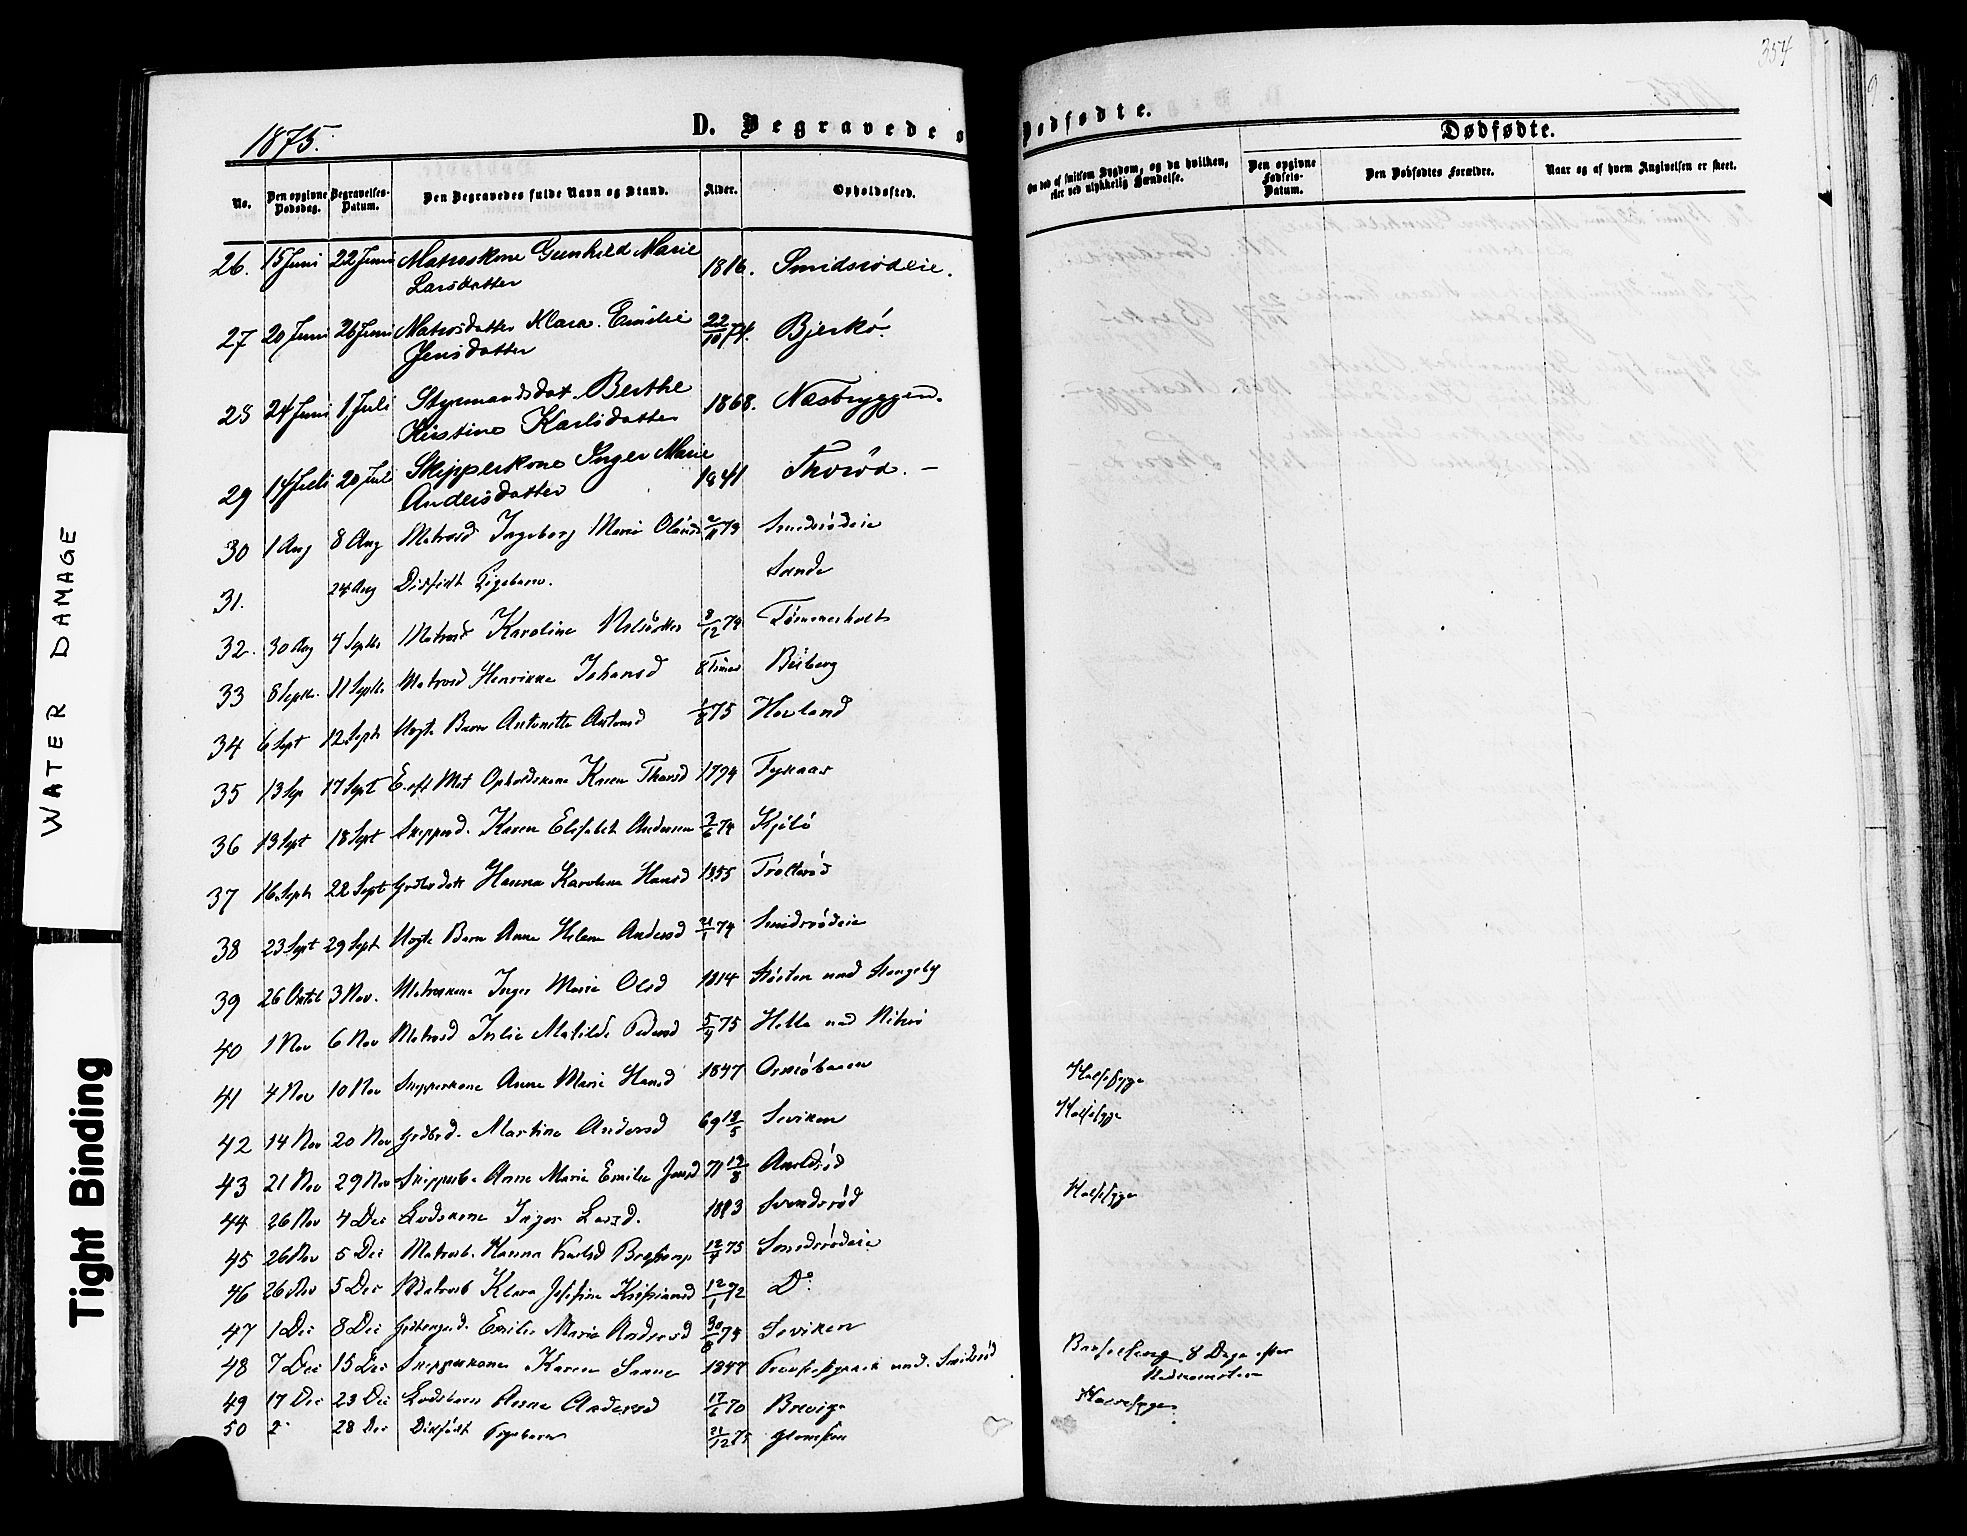 354
1875.
D. Begravede o
Dødfødte.
Dødfødte.
No.
Den opgivne Dødsdag.
Begravelses-Datum.
Den Begravedes fulde Navn og Stand.
Alder.
Opholdssted.
Om død af smitsom Sygdom, og da hvilken,
eller ved ulykkelig Hændelse.
Den opgivne Fødsels-Datum.
Den Dødfødtes Forældre.
Naar og af hvem Angivelsen er skeet.
26. 15 Juni 22 Juni Matroskone Gunhild Marie 1816. Smidsrødeie.
Larsdatter
27 20 Juni 26 Juni Matrosdatter Klara Emilie 22/10 74. Bjerkø.
Jensdatter
28 24 Juni 1 Juli Styrmandsdat. Berthe 1868. Næsbryggen.
Kirstine Karlsdatter
29 14 Juli 20 Juli Skipperkone Inger Marie 1841 Thorød. –
Andersdatter
30 1 Aug 8 Aug Matrosd Ingeborg Marie Olausd Smedsrødeie
31. 24 Aug Dødfødt Pigebarn. Sande
32. 30 Aug 4 Septbr Matrosd Karoline Nilsdatter 8/12 74 Tømmerholt
33 8 Septbr. 11 Septbr Matrosd Henrikka Johansd 8 Timer Buberg
34 6 Sept 12 Septb Uegte Barn Antonette Antonsd 1/8 75 Hovland
35 13 Sep 17 Sept E. eft Mat Opholdskone Karen Thorsd 1794 Fynaas
36 13 Sept 18 Sept Skipperd. Karen Elisabet Andersen 3/6 74 Kjølø
37 16 Septb 22 Sept Gdbr dat Hanna Karoline Hansd 1855 Trollsrød
38 23 Sept 29 Sept Uegte Barn Anne Helene Andersd 21/1 74 Smidsrødeie
39 26 Oktob 3 Nov. Matroskone Inger Marie Olsd 1814 Stosten und Stangeby
40 1 Nov 6 Nov Matrosd Julie Matilde Pedersd 5/4 75 Hella
41 4 Nov 10 Nov Skipperkone Anne Marie Hansd 1847 Ormøbakken Halssyge
42 14 Nov 20 Nov Grdbrd. Martine Andersd 69 18/5 Seviken Halssyge
43 21 Nov 29 Nov Skipperb. Anne Marie Emilie Jensd 71 19/8
44 26 Nov 4 Dec Lodskone Inger Larsd. Svendsrød Halssyge
45 26 Nov 5 Dec Matrosb. Hanna Karlsd 12/4 75 Smedsrødeie
46 26 Nov 5 Dec Matrosb Klara Josefine Kristiansd 12/1 72 Do.
47 1 Dec 8 Dec Emilie Marie Andersd 30/8 75 Seviken
48 7 Dec 15 Dec Skipperkone Karen Sanne 1847 und. Smidsrød Barselseng 8 Dage efter
Nedkomsten
49 17 Dec 23 Dec Lodsbarn Anne Andersd 17/6 70 Brevige Halssyge
50 2 28 Dec Dødfødt Pigebarn 21/12 75 Glomsten
WATER DAMAGE
Tight Binding